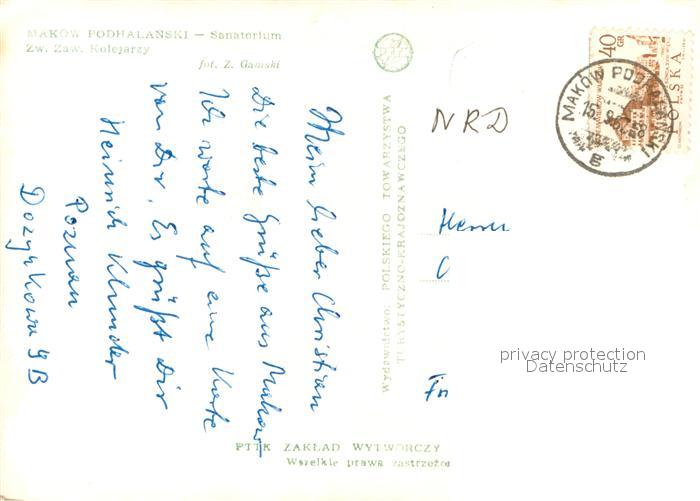 MAKÓW PODHALAŃSKI — Sanatorium
Zw. Zaw. Kolejarzy
fot. Z. Gamski
Mein lieber Christian
Die beste Grüße aus Makow
Ich warte auf eine Karte
von Dir. Es grüßt Dir
Heinrich Klunder
Poznan
Dożynkowa 9B
Wydawnictwo: POLSKIEGO TOWARZYSTWA
TURYSTYCZNO-KRAJOZNAWCZEGO
PTTK ZAKŁAD WYTWÓRCZY
Wszelkie prawa zastrzeżone
40 GR
POLSKA
MAKÓW PODHALAŃSKI
NRD
Herrn
privacy protection
Datenschutz